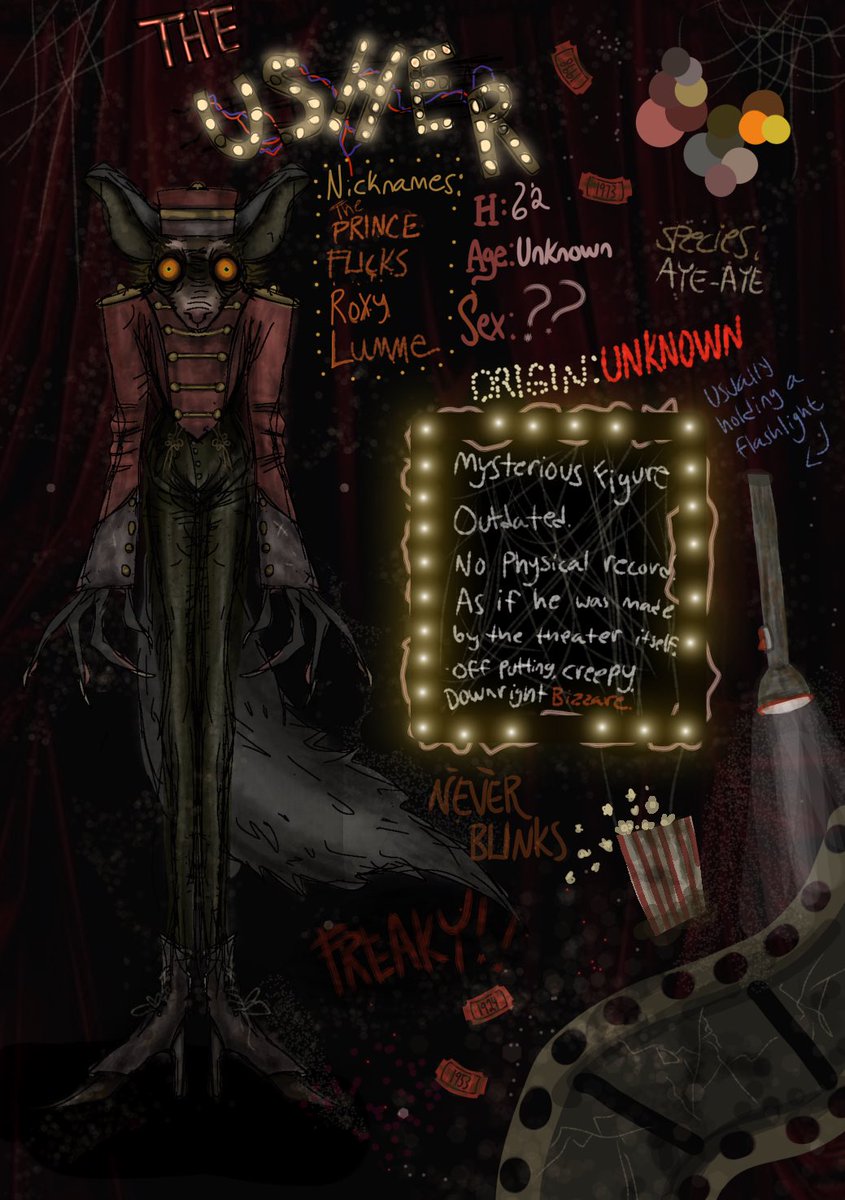 THE
USHER
Nicknames:
The
PRINCE
FLICKS
Roxy
Lumme
H: 6'2
Age: Unknown
Sex: ??
Species:
AYE-AYE
ORIGIN: UNKNOWN
Usually
holding a
flashlight
Mysterious figure
Outdated.
No Physical record.
As if he was made
by the theater itself.
off putting, creepy
Downright Bizzare.
NEVER
BLINKS
FREAKY!!
1973
1924
1953